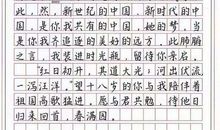 此，然，新世纪的中国，新时代的中
国，是你我共有的中国，她的梦，当
是你我齐追逐的美好的远方，此肺腑
之言，我装进时光瓶，留待你亲启。
“红日初升，其道大光；河出伏流，
一泻汪洋。”望十八岁的你与你陪伴着
祖国高歌猛进，愿与君共勉，待他日
归来回首，春满园。